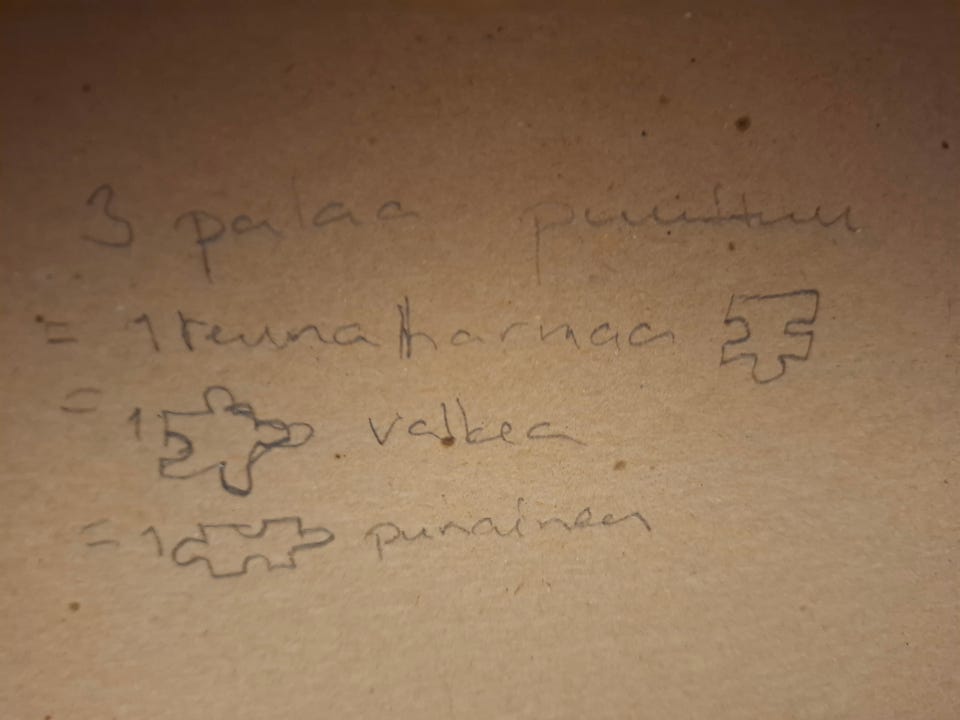 3 palaa puuttuu
= 1 reuna harmaa
= 1 valkea
= 1 punainen